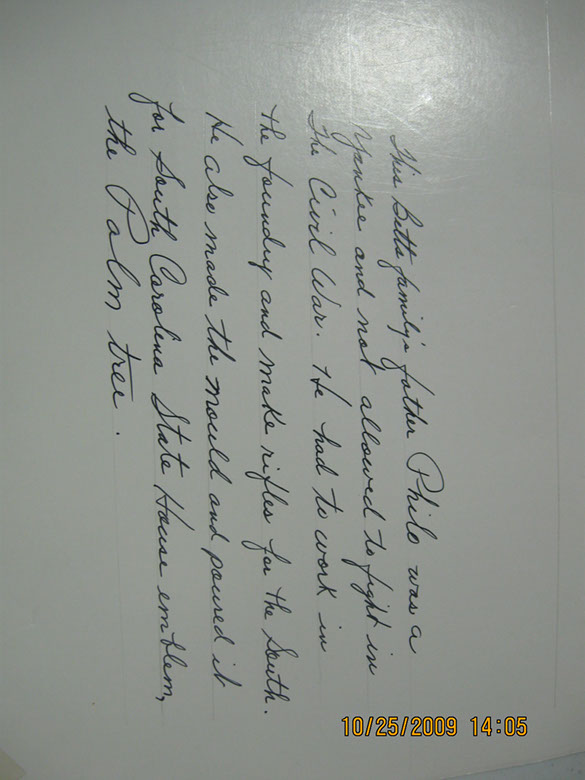 This Betts family's father Philo was a
Yankee and not allowed to fight in
the Civil War. He had to work in
the foundry and make rifles for the South.
He also made the mould and poured it
for South Carolina State House emblem,
the Palm tree.
10/25/2009 14:05